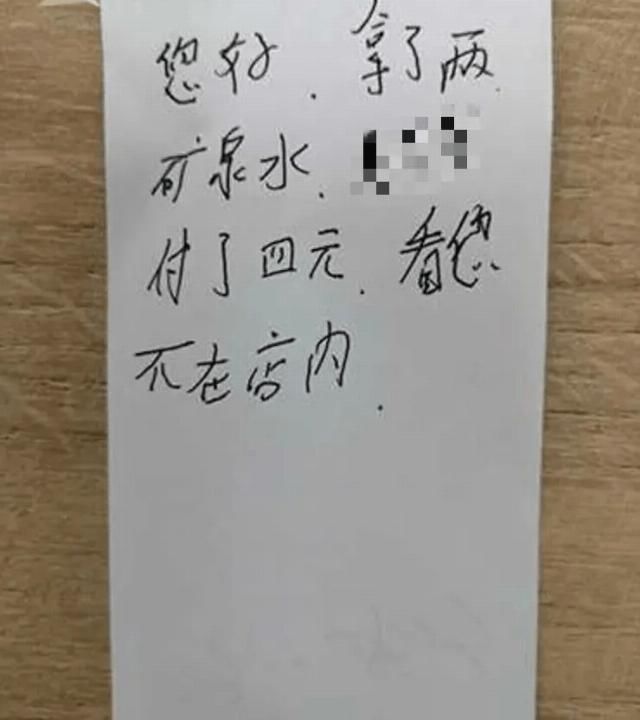 您好. 拿了两
矿泉水.
付了四元. 看您
不在店内.